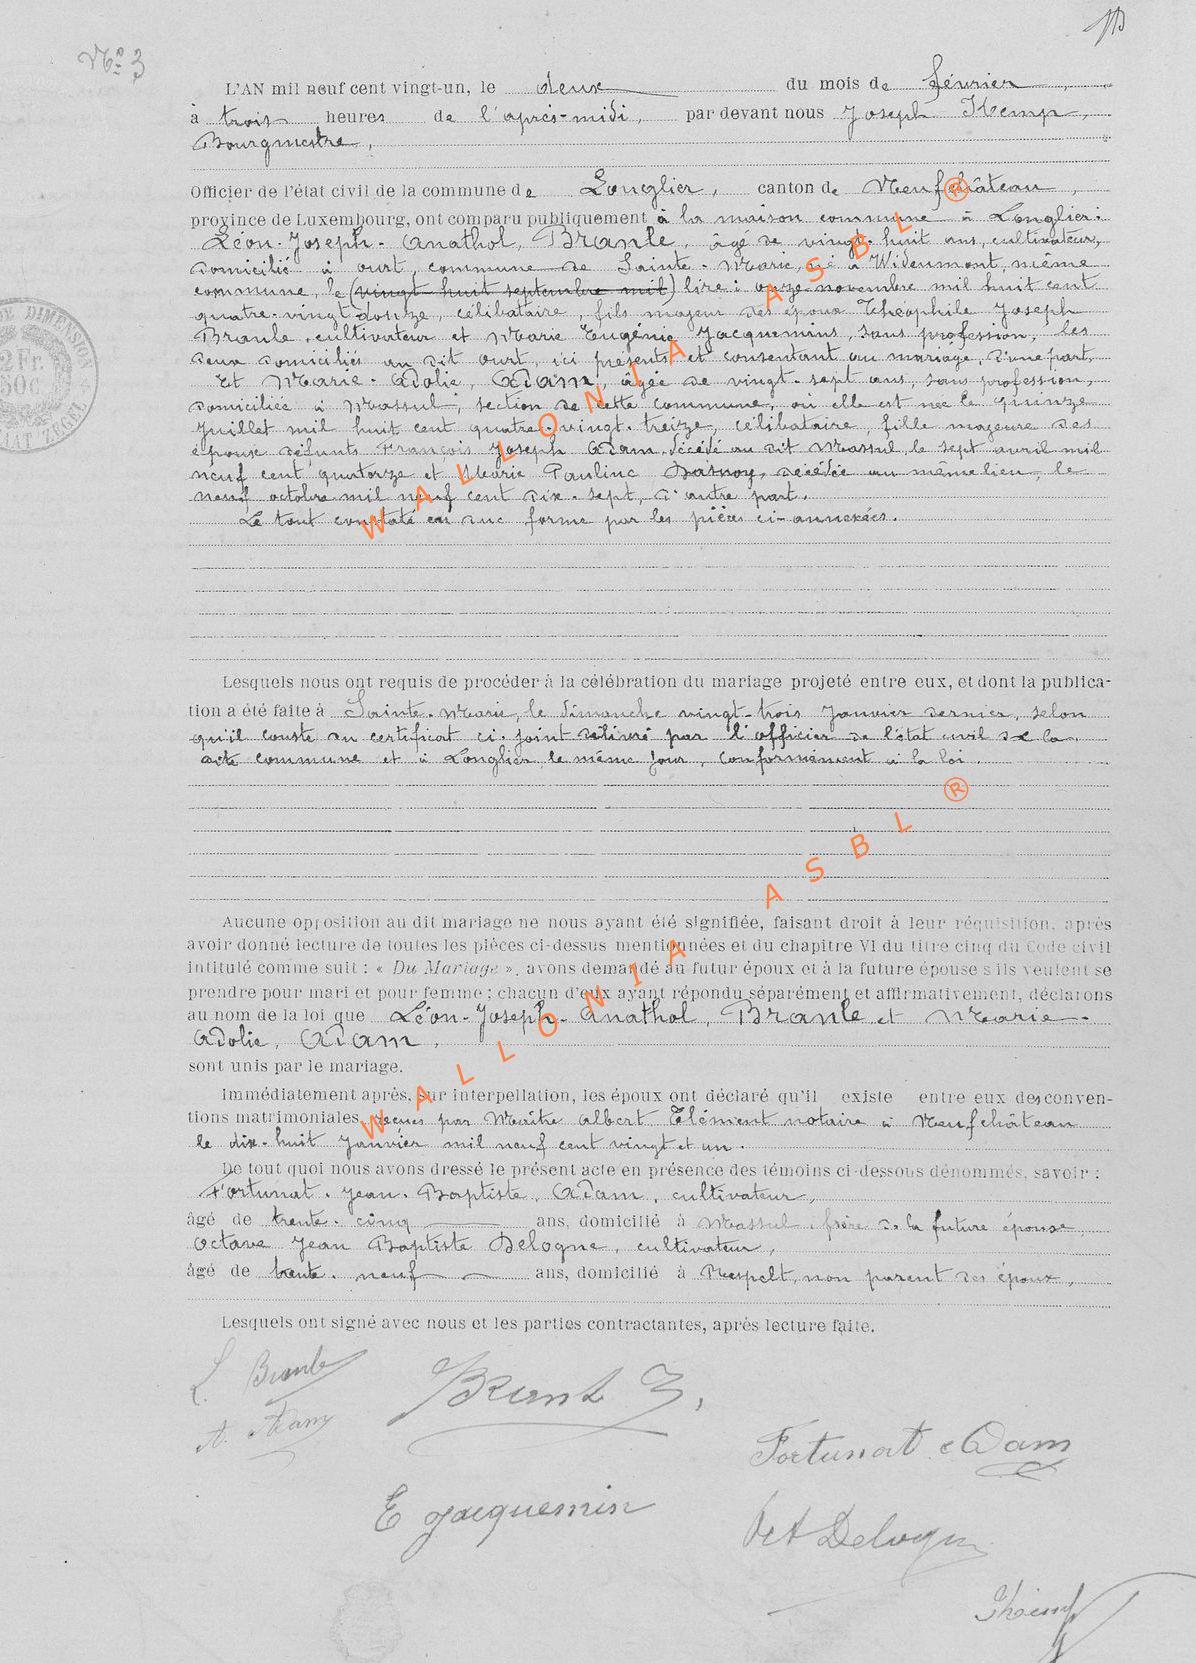 N° 3
L'AN mil neuf cent vingt-un, le deux du mois de février
à trois heures de l'après-midi, par devant nous Joseph
Bourgmestre,
Officier de l'état civil de la commune de Longlier, canton de Neufchâteau,
province de Luxembourg, ont comparu publiquement à la maison commune à Longlier:
Léon-Joseph-Anathol, Branle, âgé de vingt-huit ans, cultivateur,
domicilié à Ourt, commune de Sainte-Marie, né à Wideumont, même
commune, le (vingt huit septembre mil) lire: onze novembre mil huit cent
quatre-vingt-douze, célibataire, fils majeur des époux Théophile Joseph
Branle, cultivateur et Marie Eugénie Jacquemins, sans profession, les
deux domiciliés au dit Ourt, ici présents et consentant au mariage, d'une part,
Et Marie-Adolie, ADAM, âgée de vingt-sept ans, sans profession,
domiciliée à Massul, section de cette commune, où elle est née le quinze
juillet mil huit cent quatre-vingt-treize, célibataire, fille majeure des
époux défunts François Joseph Adam, décédé au dit Massul, le sept avril mil
neuf cent quatorze et Marie Pauline Dasnoy, décédée au même lieu, le
neuf octobre mil neuf cent dix-sept, d'autre part.
Le tout constaté en due forme par les pièces ci-annexées.
Lesquels nous ont requis de procéder à la célébration du mariage projeté entre eux, et dont la publica-
tion a été faite à Sainte-Marie, le dimanche vingt-trois janvier dernier, selon
qu'il conste du certificat ci-joint délivré par l'officier de l'état civil de la
dite commune et à Longlier, le même jour, conformément à la loi.
Aucune opposition au dit mariage ne nous ayant été signifiée, faisant droit à leur réquisition, après
avoir donné lecture de toutes les pièces ci-dessus mentionnées et du chapitre VI du titre cinq du Code civil
intitulé comme suit : « Du Mariage », avons demandé au futur époux et à la future épouse s'ils veulent se
prendre pour mari et pour femme ; chacun d'eux ayant répondu séparément et affirmativement, déclarons
au nom de la loi que Léon-Joseph-Anathol, Branle et Marie-
Adolie, ADAM,
sont unis par le mariage.
Immédiatement après, sur interpellation, les époux ont déclaré qu'il existe entre eux des conven-
tions matrimoniales reçues par Maître Albert Clément notaire à Neufchâteau
le dix-huit janvier mil neuf cent vingt et un.
De tout quoi nous avons dressé le présent acte en présence des témoins ci-dessous dénommés, savoir :
Fortunat-Jean-Baptiste, ADAM, cultivateur,
âgé de trente-cinq ans, domicilié à Massul, frère de la future épouse
Octave Jean Baptiste Delogne, cultivateur,
âgé de trente-neuf ans, domicilié à Respelt, non parent des époux,
Lesquels ont signé avec nous et les parties contractantes, après lecture faite.
L. Branle
A. Adam
Fortunat Adam
E Jacquemin
Oct Delogne
WALLONIA ASBL ®
WALLONIA ASBL ®